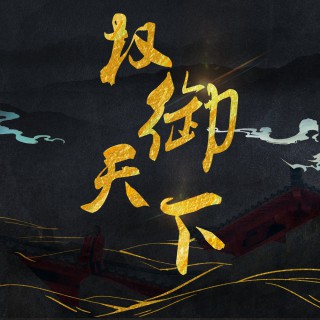 权御天下